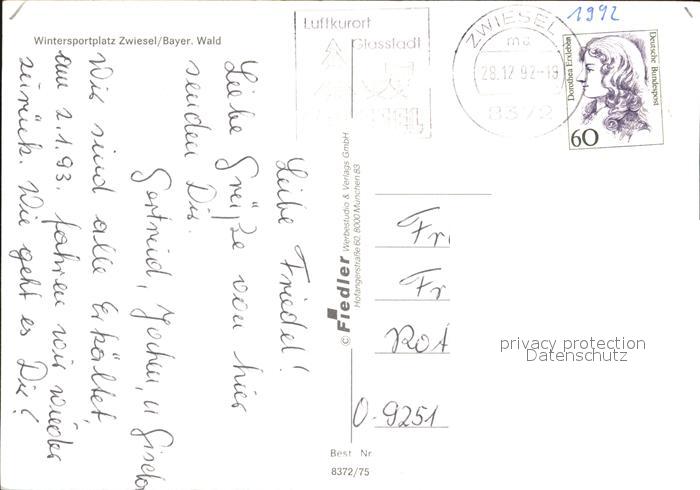 1992
Wintersportplatz Zwiesel/Bayer. Wald
Luftkurort
Glasstadt
ZWIESEL
ma
28.12.92-19
8372
Dorothea Erxleben
Deutsche Bundespost
60
Liebe Friedel!
Liebe Grüße von hier
senden Dir.
Gertrud, Jochen, u Gisela
Wir sind alle Erkältet,
am 2.1.93. fahren wir wieder
zurück. Wie geht es Dir?
© Fiedler Werbestudio & Verlags GmbH
Hofangerstraße 60, 8000 München 83
Fr
Fr
Rot
O-9251
privacy protection
Datenschutz
Best Nr
8372/75